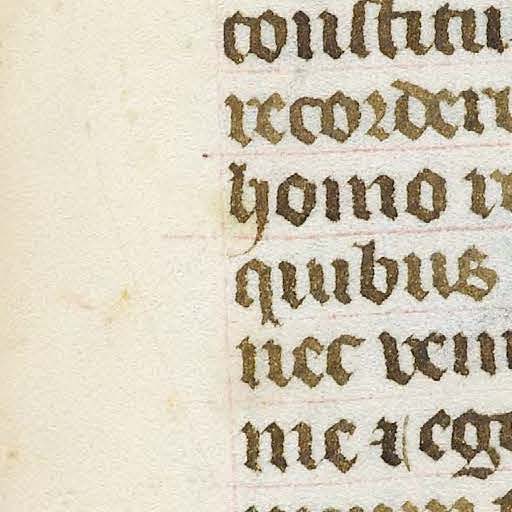 constitu
recorder
homo re
quibus
nec ven
me ⁊ ego